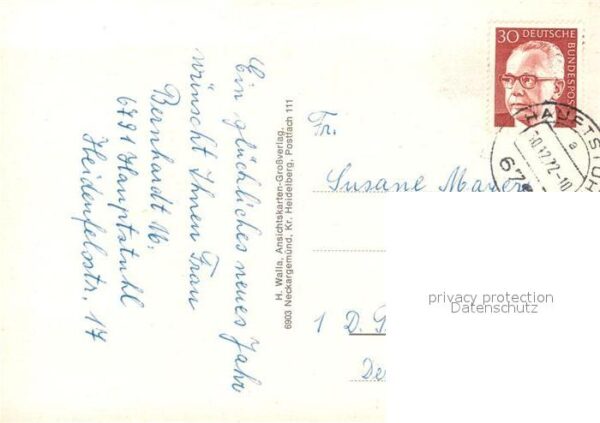 Ein glückliches neues Jahr
wünscht Ihnen Frau
Bernhardt M.
6791 Hauptstuhl
Heidenfelsstr. 17
H. Walla, Ansichtskarten-Großverlag,
6903 Neckargemünd, Kr. Heidelberg, Postfach 111
30 DEUTSCHE BUNDESPOST
HAUPTSTUH
a
30.12.72-10
67
Fr.
Susane Mauer
1 D. G
De
privacy protection
Datenschutz